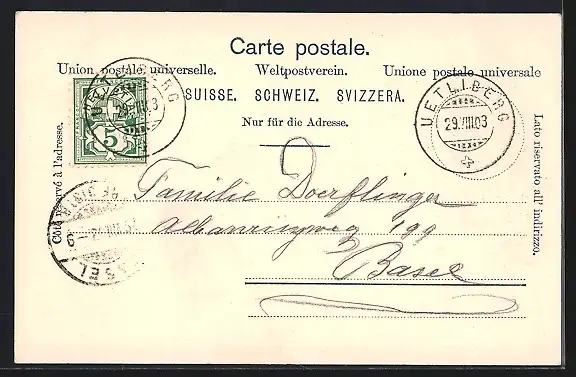 Carte postale.
Union postale universelle. Weltpostverein. Unione postale universale
SUISSE. SCHWEIZ. SVIZZERA.
Nur für die Adresse.
Côté réservé à l'adresse.
Lato riservato all' indirizzo.
UETLIBERG
29.VIII.03
5
UETLIBERG
29.VIII.03
BASEL
Familie Doerflinger
199
Basel